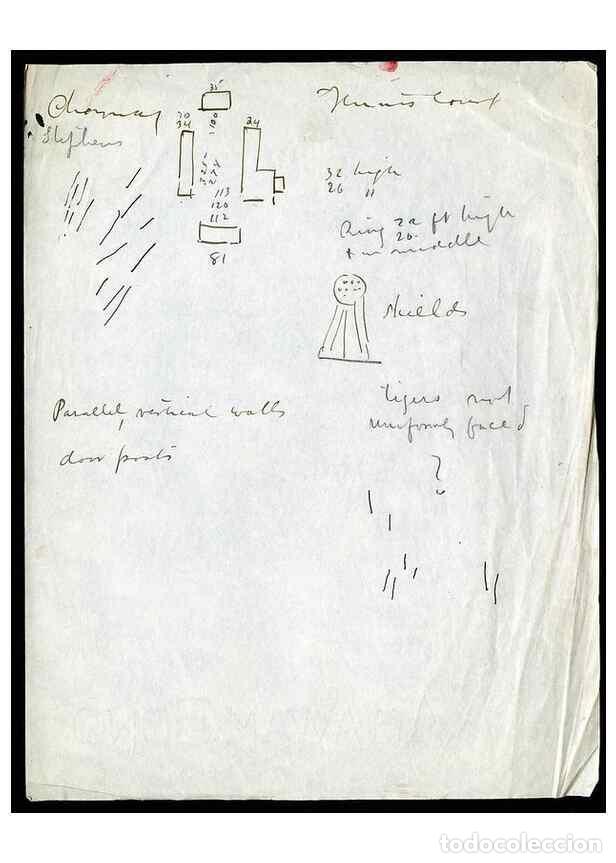 Stephens
35
70
34
34
113
120
112
81
Tennis Court
32 high
26 "
Ring 22 ft high
20
+ in middle
shields
Parallel, vertical walls
door posts
tigers not
uniformly faced
?
todocoleccion